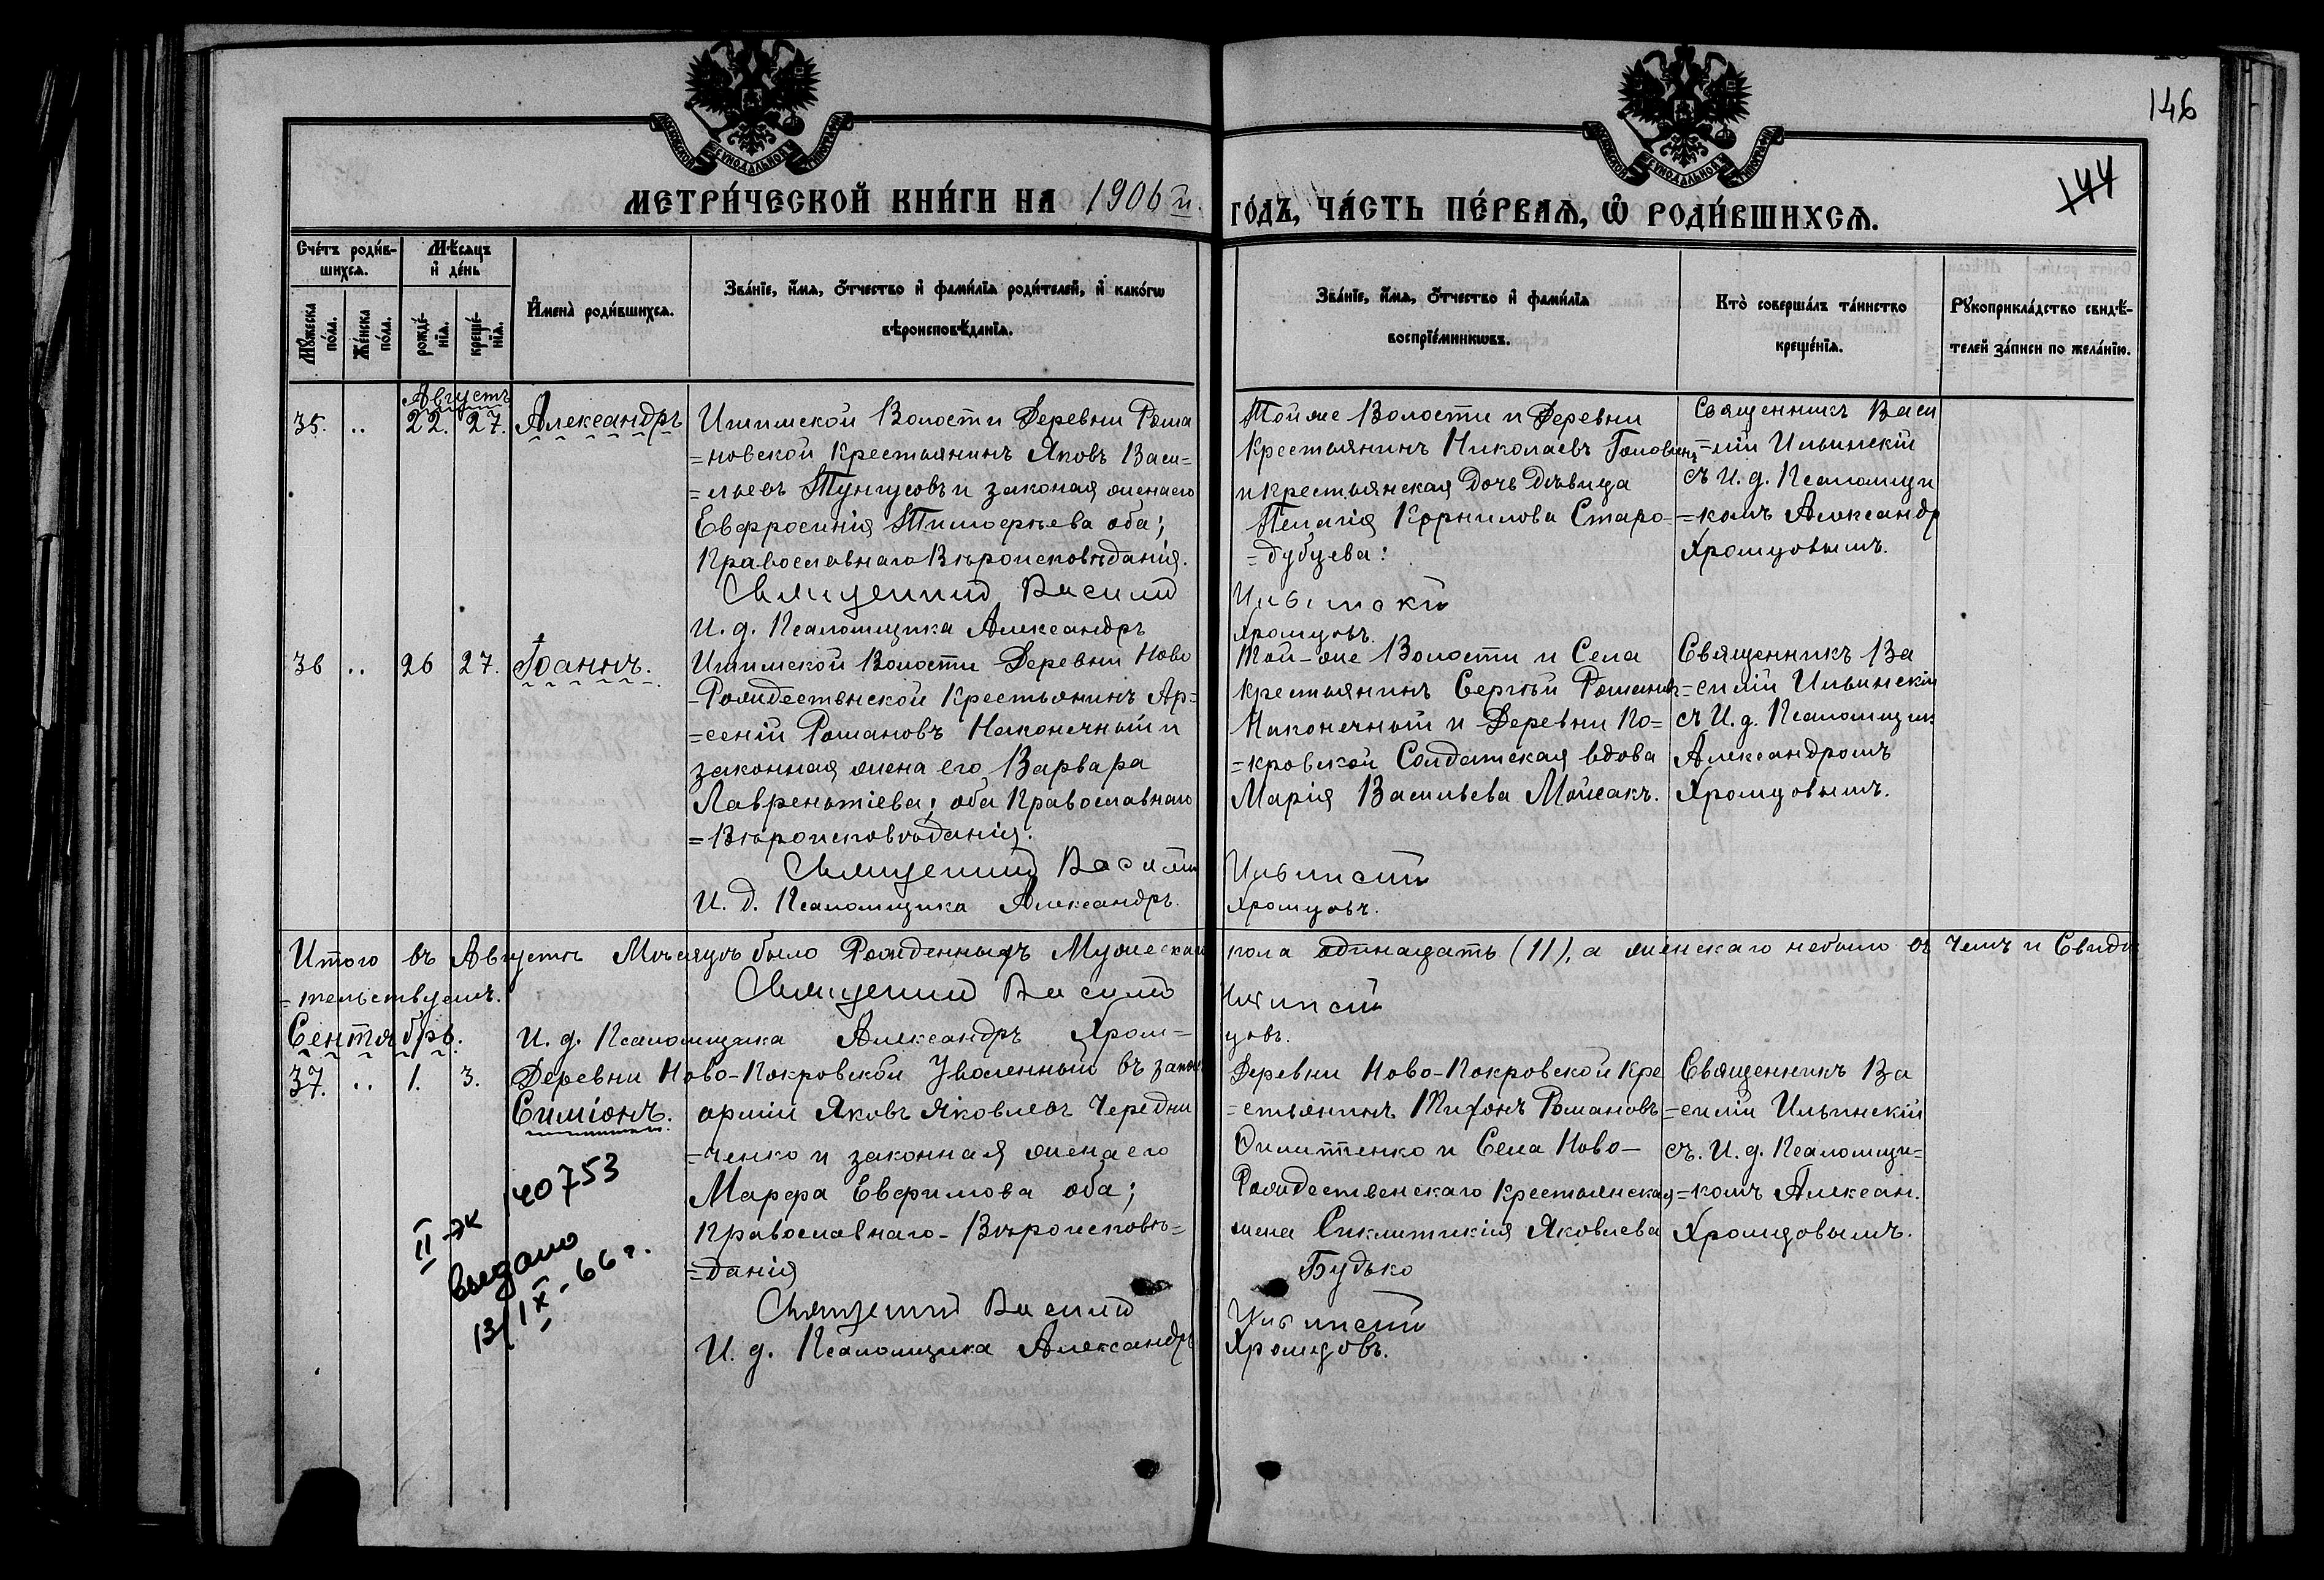 146
144
МОСКОВСКОЙ СУНОДАЛЬНОЙ ТИПОГРАФІИ
МОСКОВСКОЙ СУНОДАЛЬНОЙ ТИПОГРАФІИ
МЕТРИ́ЧЕСКОЙ КНИ́ГИ НА 1906 й.
ГО́ДЪ, ЧА́СТЬ ПЕ́РВАѦ, Ѽ РОДИ́ВШИХСѦ.
Сче́тъ роди́в-
шихсѧ.
Мꙋ́жеска по́ла.
Же́нска по́ла.
Мѣ́сѧцъ
и҆ де́нь
рожде́-
нїѧ.
креще́-
нїѧ.
И҆мена̀ роди́вшихсѧ.
Зва́нїе, и҆́мѧ, ѻ҆́тчество и҆ фами́лїѧ роди́телей, и҆ како́гѡ
вѣроисповѣ́данїѧ.
Зва́нїе, и҆́мѧ, ѻ҆́тчество и҆ фами́лїѧ
воспрїе́мникѡвъ.
Кто̀ соверша́лъ та́инство
креще́нїѧ.
Рꙋкоприкла́дство свидѣ́-
телей за́писи по жела́нїю.
Августъ
35. .. 22. 27. Александръ
Ишимской Волости Деревни Рома
=новской Крестьянинъ Яковъ Васи=
=льевъ Тунгусовъ и законая жена его
Евфросинія Тимоерьева оба;
Православнаго Вѣроисповѣданія.
Священникъ Василій
И. д. Псаломщика Александръ
Той же Волости и Деревни
Крестьянинъ Николаевъ Головинъ
и Крестьянская Дочь Дѣвица
Пелагія Корнилова Старо-
=дубцева:
Ильинскій
Хромцовъ.
Священникъ Васи
=лій Ильинскій
съ И. д. Псаломщи
=комъ Александр
Хромцовымъ.
36 .. 26 27. Іоаннъ.
Ишимской Волости Деревни Ново
-Рождественской Крестьянинъ Ар=
=сеній Романовъ Наконечный и
законная жена его Варвара
Лаврентіева; оба Православнаго
=Вѣроисповѣданія.
Священникъ Василій
И. д. Псаломщика Александръ.
Той-же Волости и Села
Крестьянинъ Сергѣй Романовъ
Наконечный и Деревни По=
=кровской Солдатская вдова
Марія Васильева Мойсакъ.
Ильинскій
Хромцовъ.
Священникъ Ва
=силій Ильинскій
съ И. д. Псаломщик
Александромъ
Хромцовымъ.
Итого въ Августѣ Мѣсяцѣ было Рожденныхъ Мужескаго пола одинадцать (11), а женскаго небыло въ чемъ и Свидѣ
=тельствуемъ. Священникъ Василій Ильинскій
Сентябрь. И. д. Псаломщика Александръ Хром=
цовъ.
37. .. 1. 3.
Симіонъ.
Деревни Ново-Покровской Уволенный въ запасъ
арміи Яковъ Яковлевъ Чередни
=ченко и законная жена его
Марфа Евфимова оба;
Православнаго-Вѣроисповѣ=
=данія
Священникъ Василій
И. д. Псаломщика Александръ
Деревни Ново-Покровской Кре
=стьянинъ Тихонъ Романовъ
Филиппенко и Села Ново-
Рождественскаго Крестьянская
жена Синклитикія Яковлева
Будько
Ильинскій
Хромцовъ.
Священникъ Ва
=силій Ильинскій
съ. И. д. Псаломщи=
=комъ Алексан.
Хромцовымъ.
II-эк 140753
выдано
13/IX-66 г.